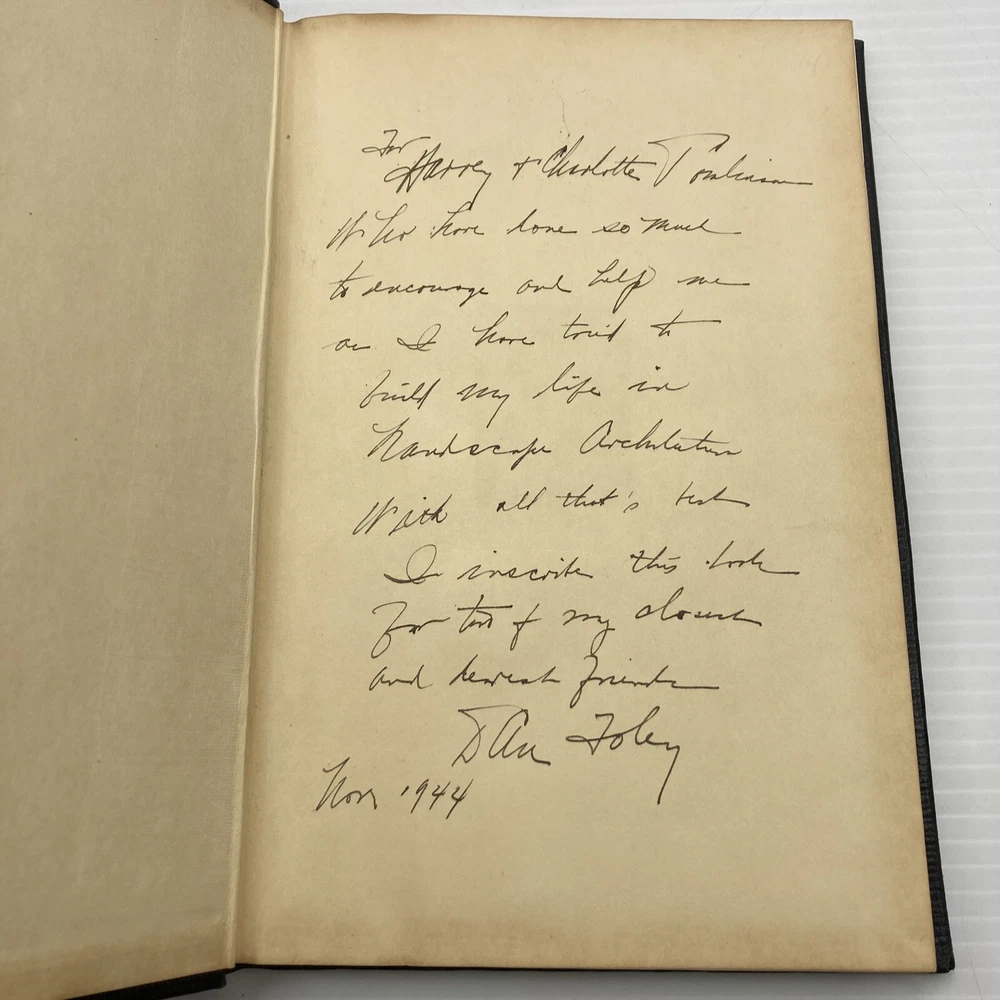 For
Harvey + Charlotte Tomlinson
Who have done so much
to encourage and help me
as I have tried to
build my life in
Landscape Architecture
With all that's best
I inscribe this book
For two of my closest
and dearest friends
Dan Foley
Nov, 1944